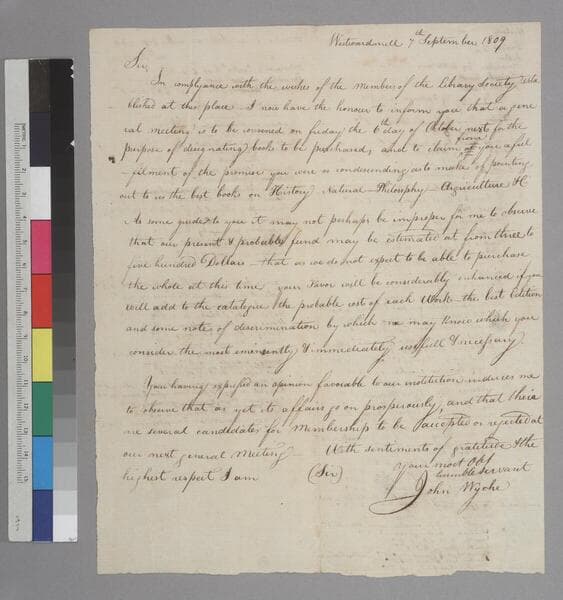 Westwardmill 7th September 1809
Sir,
In complyance with the wishes of the Members of the Library Society esta
blished at this place I now have the honour to inform you that a gene
ral meeting is to be convened on friday the 6th day of October next for the
purpose of designating books to be purchased, and to claim from you a ful
-filment of the promise you were so condescending as to make of pointing
out to us the best books on History Natural-Philosophy - Agriculture &c
As some guide to you it may not perhaps be improper for me to observe
that our present & probable fund may be estimated at from three to
five hundred Dollars - that as we do not expect to be able to purchase
the whole at this time your favor will be considerably enhanced if you
will add to the catalogue the probable cost of each Work - the best Edition
and some notes of discrimination by which we may know which you
consider the most eminently & immediately usefull & necessary.
You having expressed an opinion favorable to our institution induces me
to observe that as yet its affairs go on prosperously, and that their
are several candidates for Membership to be accepted or rejected at
our next general Meeting With sentiments of gratitude & the
highest respect I am (Sir) your most Obt
humble servant
John Wyche